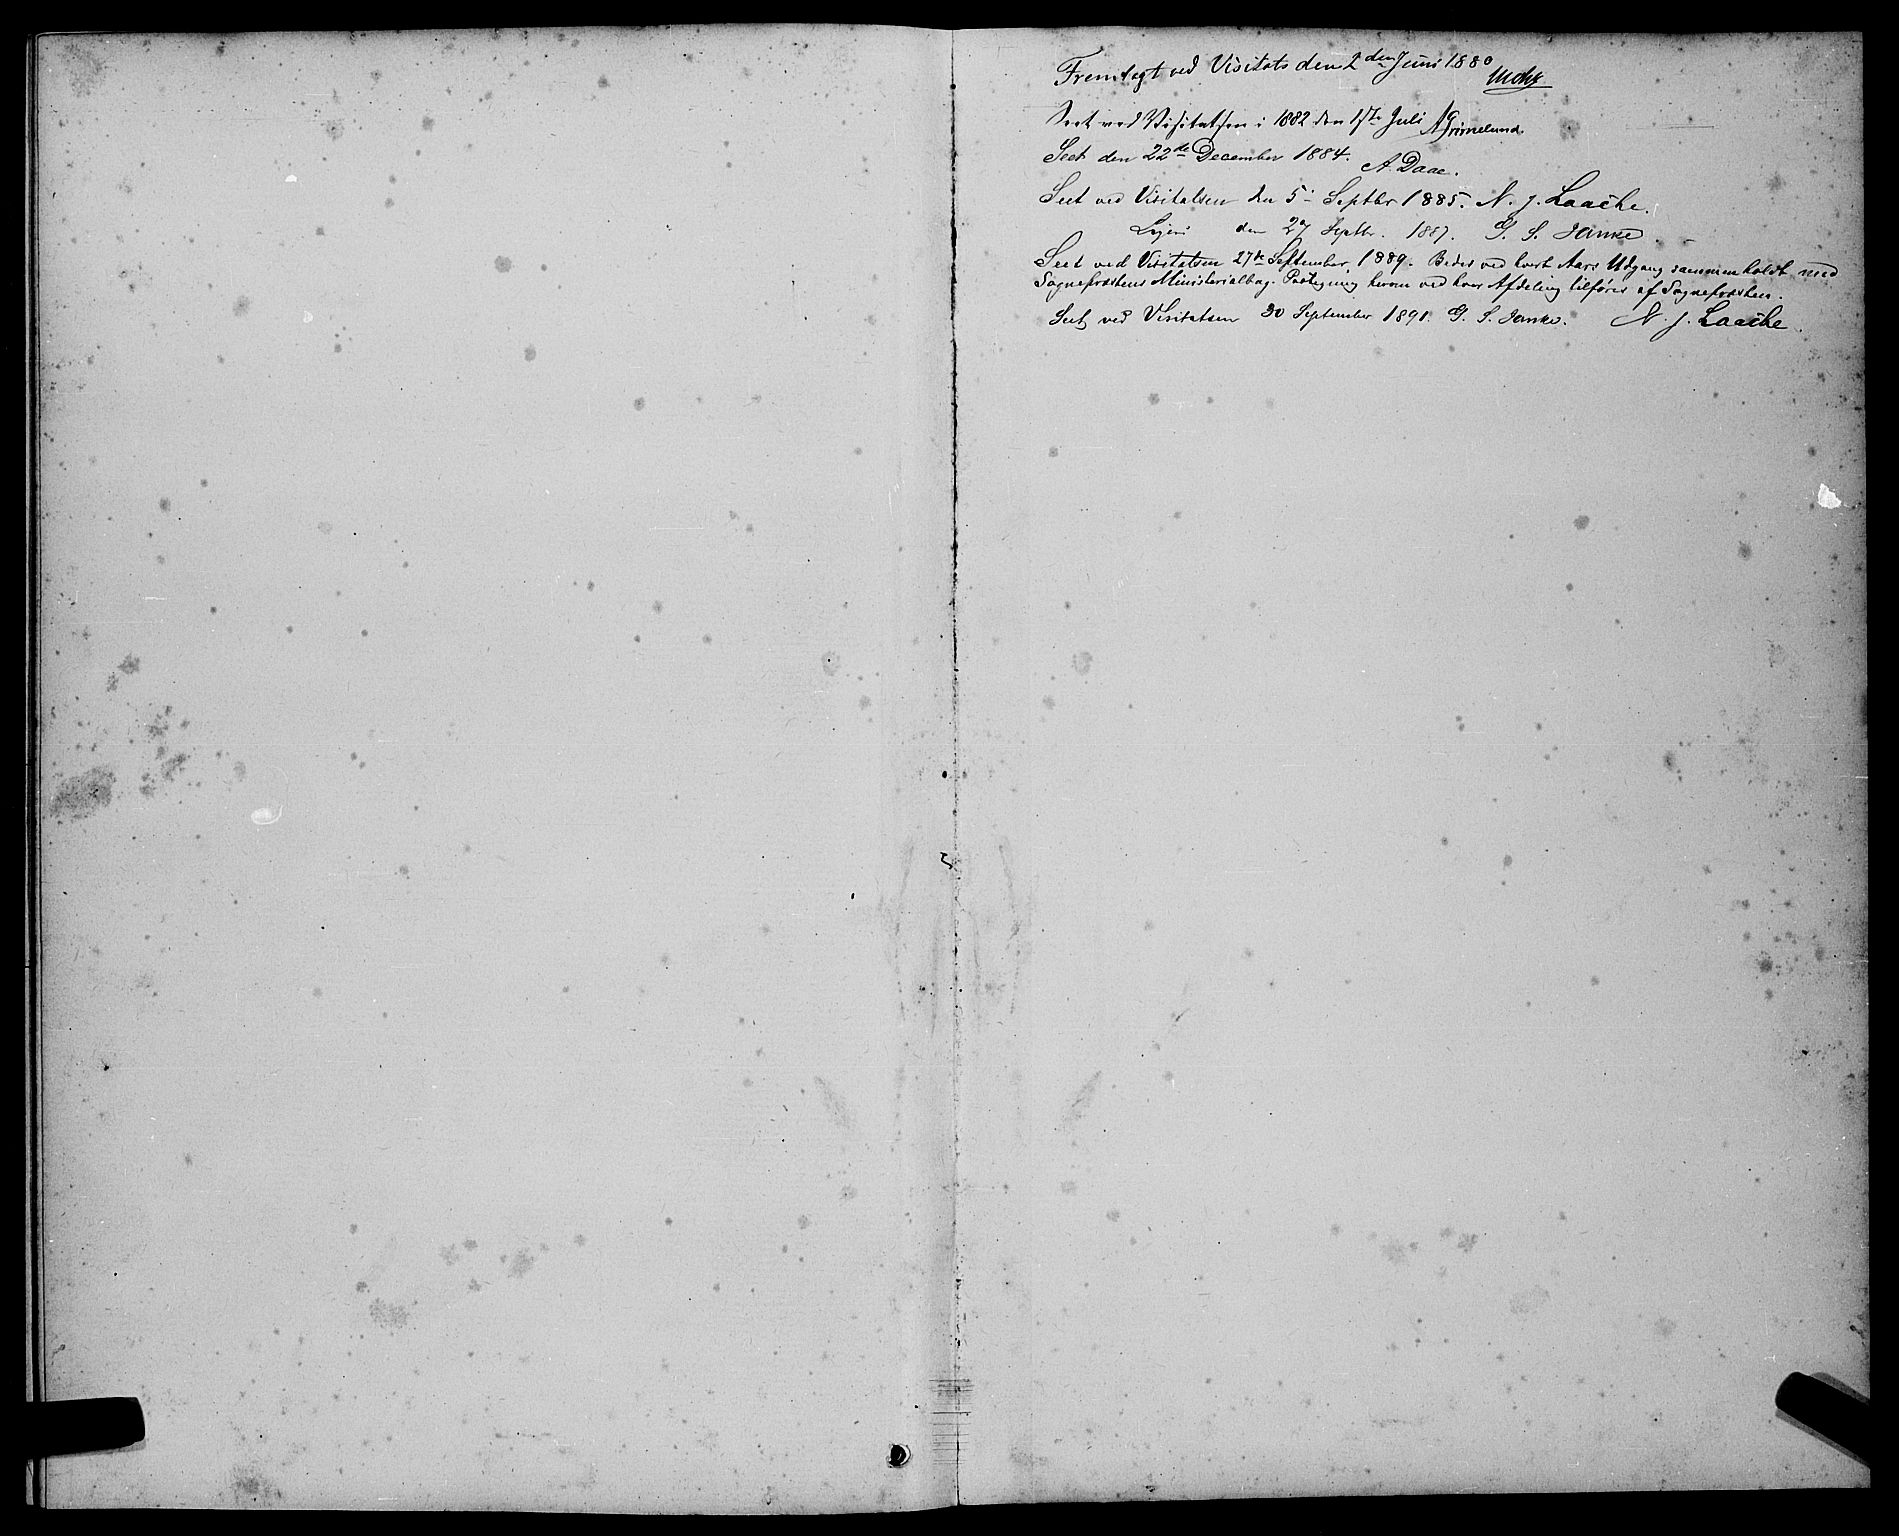 Fremlagt ved Visitats den 2den Juni 1880
Seet ved Visitatsen i 1882 den 1ste Juli AGrimelund.
Seet den 22de December 1884. A. Daae.
Seet ved Visitatsen den 5 Septbr 1885. N. J. Laache.
den 27 Septbr. 1887. G. S. Janke.
Seet ved Visitatsen 27de September 1889. Bedes ved hvert Aars Udgang sammenholdt med
Sognepræstens Ministerialbog. Paategning herom ved hver Afdeling tilføres af Sognepræsten.
Seet ved Visitatsen 30 September 1891. G. S. Janke. N. J. Laache.